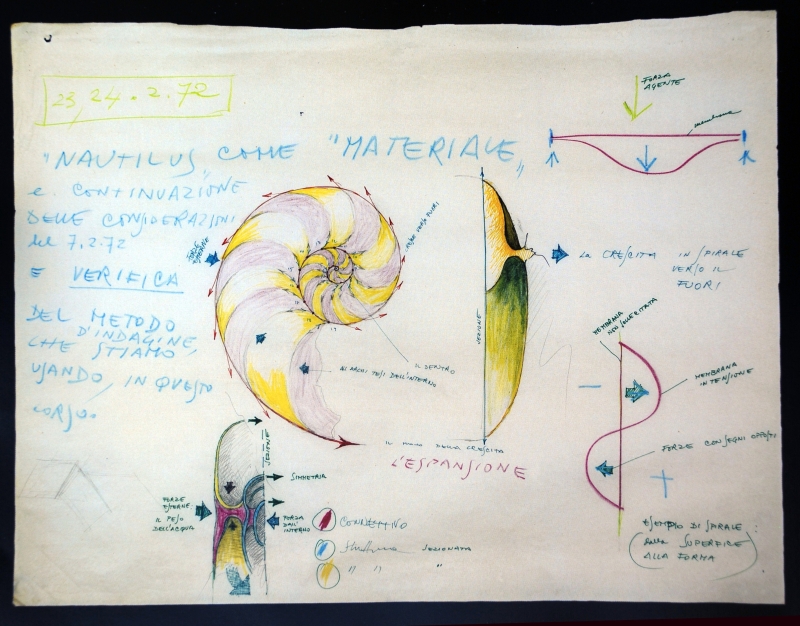 23, 24 . 2. 72
"NAUTILUS" COME "MATERIALE"
e CONTINUAZIONE
DELLE CONSIDERAZIONI
del 7.2.72
E VERIFICA
DEL METODO
D'INDAGINE,
CHE STIAMO
USANDO, IN QUESTO
CORSO.
FORZA
AGENTE
membrana
FORZE
ESTERNE
VERSO FUORI
IL DENTRO
GLI ARCHI TESI DALL'INTERNO
SEZIONE
LA CRESCITA IN SPIRALE
VERSO IL
FUORI
DELLA CRESCITA
L'ESPANSIONE
MEMBRANA
NON SOLLECITATA
MEMBRANA
IN TENSIONE
−
FORZE CON SEGNI OPPOSTI
+
ESEMPIO DI SPIRALE:
(DALLA SUPERFICE
ALLA FORMA)
SEZIONE
SIMMETRIA
FORZE
ESTERNE
IL PESO
DELL'ACQUA
FORZA
DALL'
INTERNO
CONNETTIVO
Struttura SEZIONATA
" " "